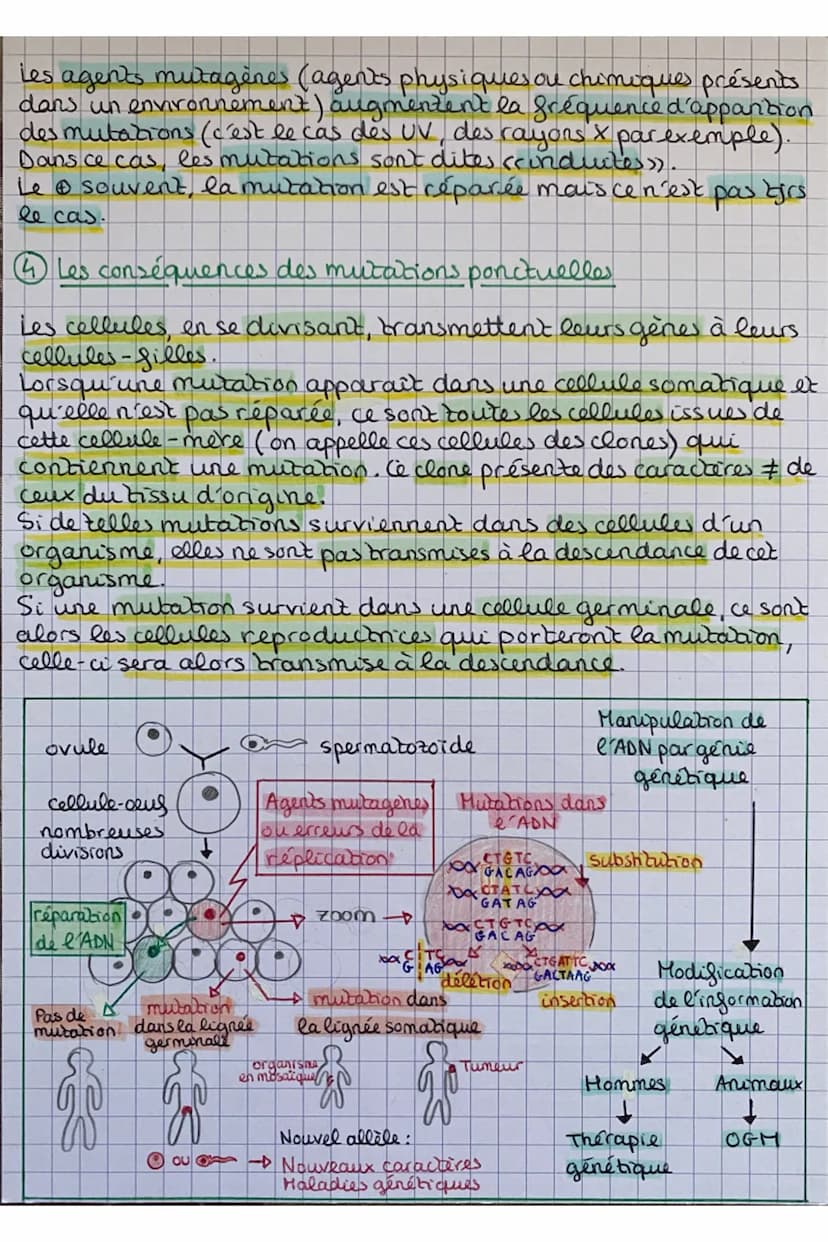 Les agents mutagènes (agents physiques ou chimiques présents
dans un environnement) augmentent la fréquence d'apparition
des mutations (c'est le cas des UV, des rayons X par exemple).
Dans ce cas, les mutations sont dites <<induites>>.
Le ⊕ souvent, la mutation est réparée mais ce n'est pas tjrs
le cas.
④ Les conséquences des mutations ponctuelles
Les cellules, en se divisant, transmettent leurs gènes à leurs
cellules-filles.
Lorsqu'une mutation apparait dans une cellule somatique et
qu'elle n'est pas réparée, ce sont toutes les cellules issues de
cette cellule-mère (on appelle ces cellules des clones) qui
contiennent une mutation. Ce clone présente des caractères ≠ de
ceux du tissu d'origine.
Si de telles mutations surviennent dans des cellules d'un
organisme, elles ne sont pas transmises à la descendance de cet
organisme.
Si une mutation survient dans une cellule germinale, ce sont
alors les cellules reproductrices qui porteront la mutation,
celle-ci sera alors transmise à la descendance.
ovule
spermatozoïde
Manipulation de
l'ADN par génie
génétique
cellule-oeuf
nombreuses
divisions
Agents mutagènes
ou erreurs de la
réplication
Mutations dans
l'ADN
CTGTC
GACAG
substitution
CTATC
GATAG
réparation
de l'ADN
zoom
CTGTC
GACAG
C TC
G AG
délétion
CTGATTC
GACTAAG
insertion
Modification
de l'information
génétique
Pas de
mutation
mutation
dans la lignée
germinale
mutation dans
la lignée somatique
organisme
en mosaïque
Tumeur
Hommes
Animaux
Thérapie
génétique
OGM
Nouvel allèle :
ou
Nouveaux caractères
Maladies génétiques